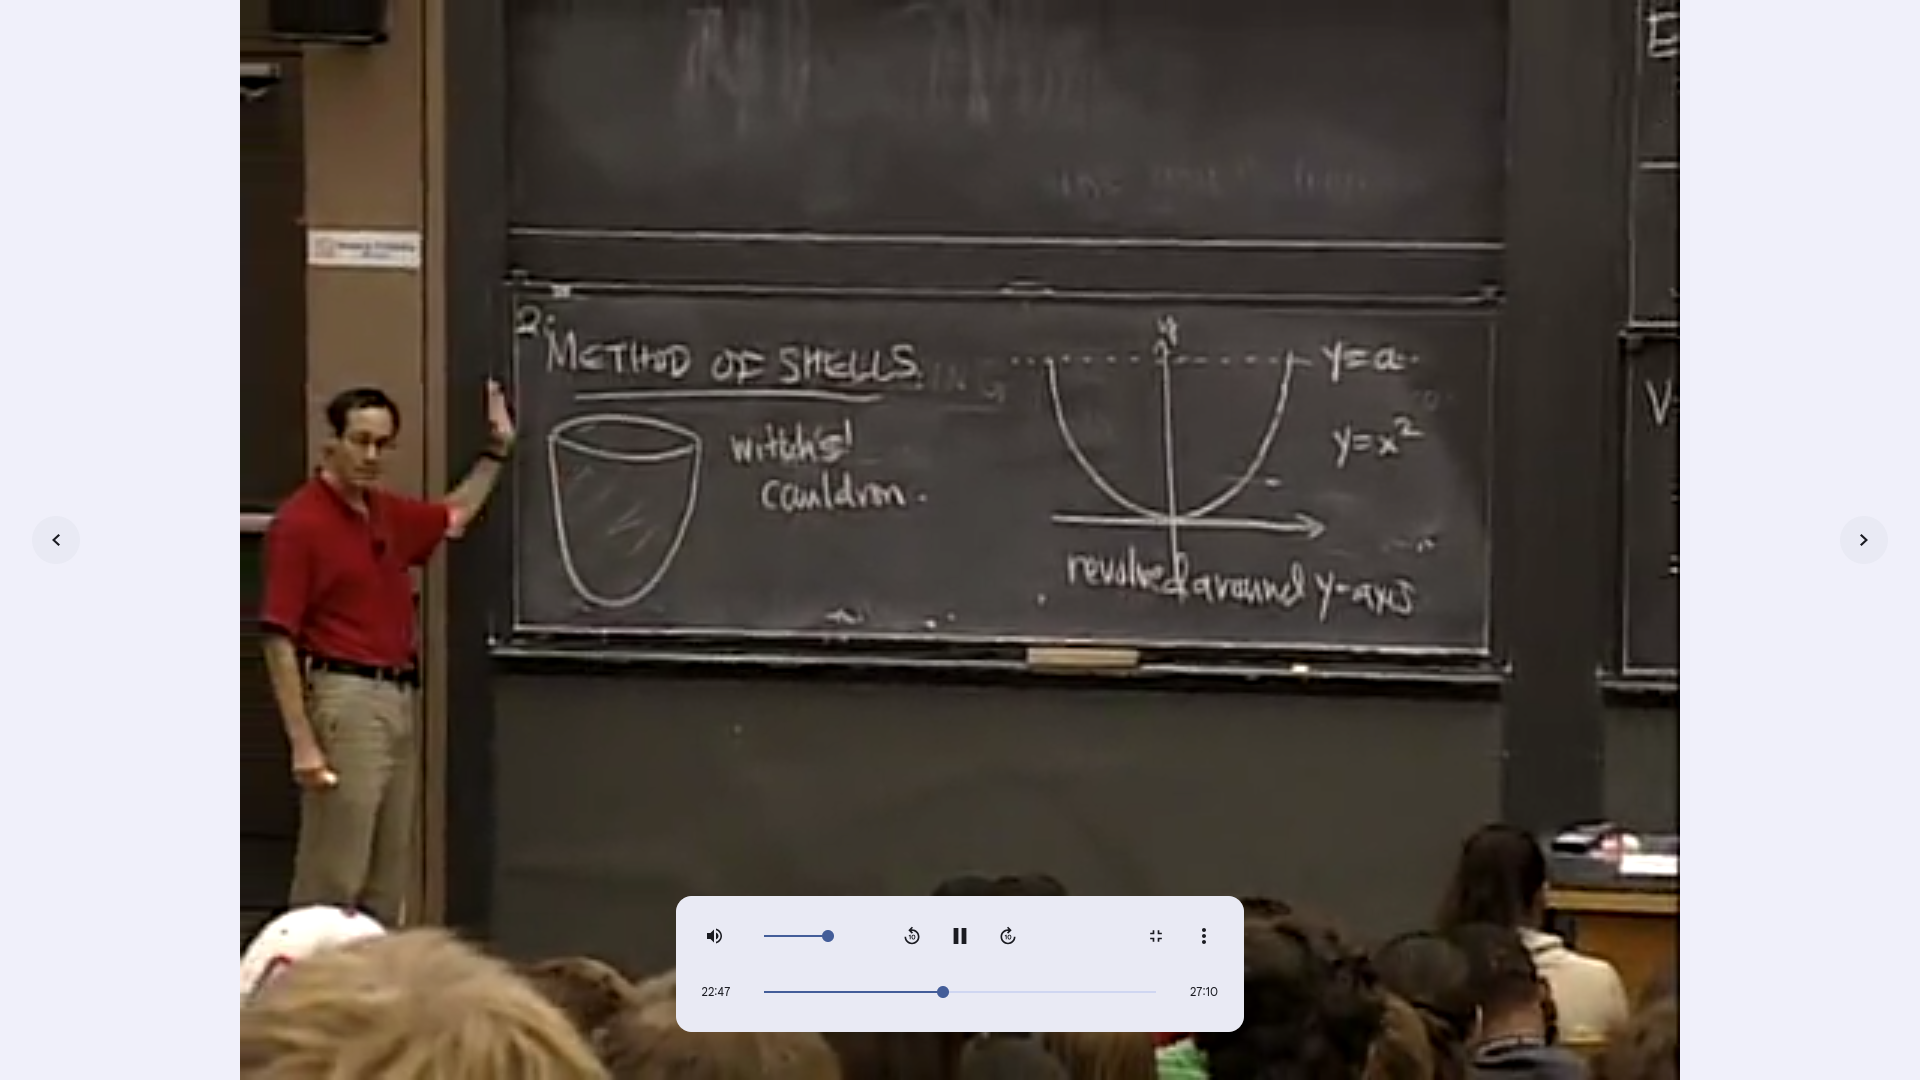 2.
METHOD OF SHELLS
witch's!
cauldron.
y
y=a
y=x²
revolved around y-axis
V
22:47
27:10